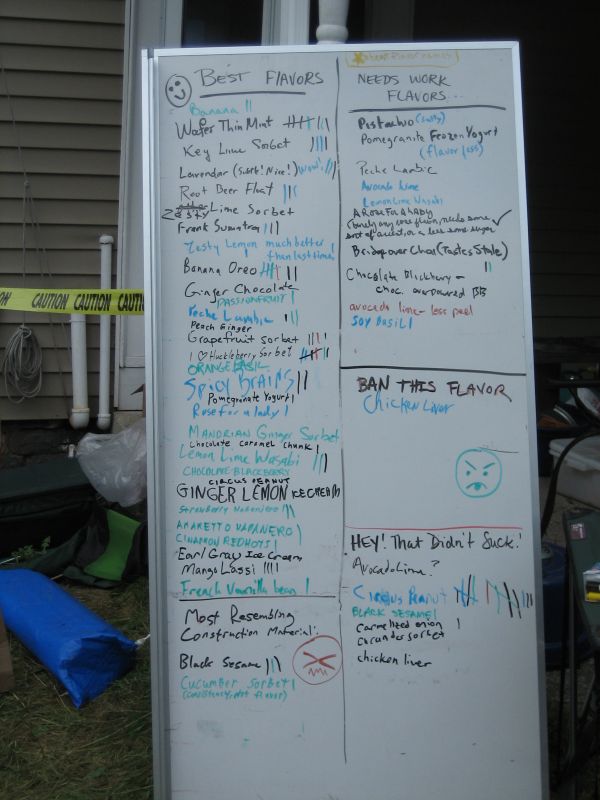 BEST FLAVORS
Banana
Wafer Thin Mint
Key Lime Sorbet
Lavendar (Subtle! Nice!) Wow!
Root Beer Float
Zesty Lime Sorbet
Frank Sumatra
Zesty Lemon much better
than last time
Banana Oreo
Ginger Chocolate
PASSIONFRUIT
Peche Lambic
Peach Ginger
Grapefruit Sorbet
I ♡ Huckleberry Sorbet
ORANGE BASIL
SPICY BRAINS
Pomegranate Yogurt
Rose for a lady
MANDRIAN Ginger Sorbet
Chocolate caramel chunk
Lemon Lime Wasabi
CHOCOLATE-BLACKBERRY
CIRCUS PEANUT
GINGER LEMON ICE CREAM
Strawberry Habanero
AMARETTO HABANERO
CINNAMON REDHOTS
Earl Gray Ice Cream
Mango Lassi
French Vannilla bean
Most Resembling
Construction Material:
Black Sesame
Cucumber Sorbet
(consistency, not flavor)
NEEDS WORK
FLAVORS...
Pistachio (salty)
Pomegranite Frozen Yogurt
(flavorless)
Peche Lambic
Avocado Lime
Lemon Lime Wasabi
A ROSE FOR A LADY
(barely any rose flavor, needs some
sort of accent, or less some sugar
(Tastes Stale)
Chocolate Blackberry -
choc. overpowered BB
avocado lime - less peel
SOY BASIL
BAN THIS FLAVOR
Chicken Liver
HEY! That Didn't Suck!
Avocado Lime?
Circus Peanut
BLACK SESAME
Carmelized onion
Coriander sorbet
chicken liver
CAUTION CAUTION CAUTI